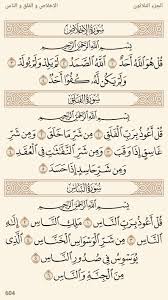 الإخلاص و الفلق و الناس
الجزء الثلاثون
سُورَةُ الإِخْلَاصِ
بِسْمِ اللَّهِ الرَّحْمَٰنِ الرَّحِيمِ
قُلْ هُوَ اللَّهُ أَحَدٌ ١ اللَّهُ الصَّمَدُ ٢ لَمْ يَلِدْ وَلَمْ يُولَدْ ٣
وَلَمْ يَكُن لَّهُ كُفُوًا أَحَدٌ ٤
سُورَةُ الفَلَقِ
بِسْمِ اللَّهِ الرَّحْمَٰنِ الرَّحِيمِ
قُلْ أَعُوذُ بِرَبِّ الْفَلَقِ ١ مِن شَرِّ مَا خَلَقَ ٢ وَمِن شَرِّ
غَاسِقٍ إِذَا وَقَبَ ٣ وَمِن شَرِّ النَّفَّاثَاتِ فِي
الْعُقَدِ ٤ وَمِن شَرِّ حَاسِدٍ إِذَا حَسَدَ ٥
سُورَةُ النَّاسِ
بِسْمِ اللَّهِ الرَّحْمَٰنِ الرَّحِيمِ
قُلْ أَعُوذُ بِرَبِّ النَّاسِ ١ مَلِكِ النَّاسِ ٢
إِلَٰهِ النَّاسِ ٣ مِن شَرِّ الْوَسْوَاسِ الْخَنَّاسِ ٤ الَّذِي
يُوَسْوِسُ فِي صُدُورِ النَّاسِ ٥
مِنَ الْجِنَّةِ وَالنَّاسِ ٦
604